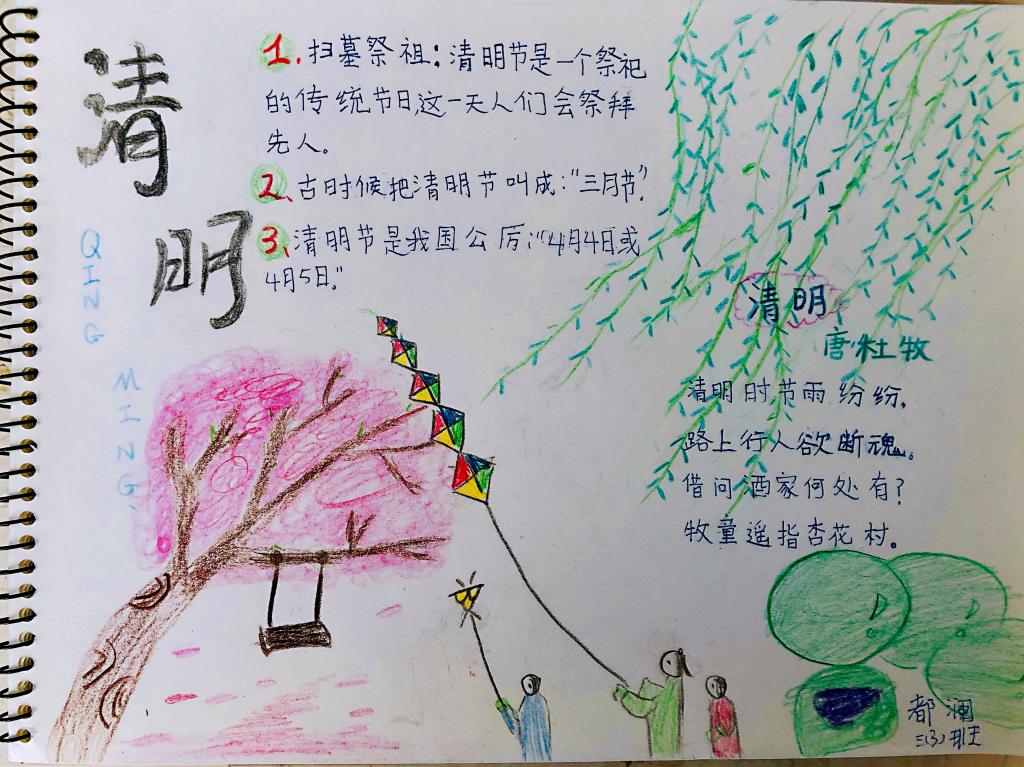 清
明
QING
MING
1. 扫墓祭祖：清明节是一个祭祀
的传统节日,这一天人们会祭拜
先人。
2、古时候把清明节叫成：“三月节”.
3、清明节是我国公厉：“4月4日或
4月5日.”
清明
唐·杜牧
清明时节雨纷纷,
路上行人欲断魂。
借问酒家何处有?
牧童遥指杏花村。
都澜
三(3)班